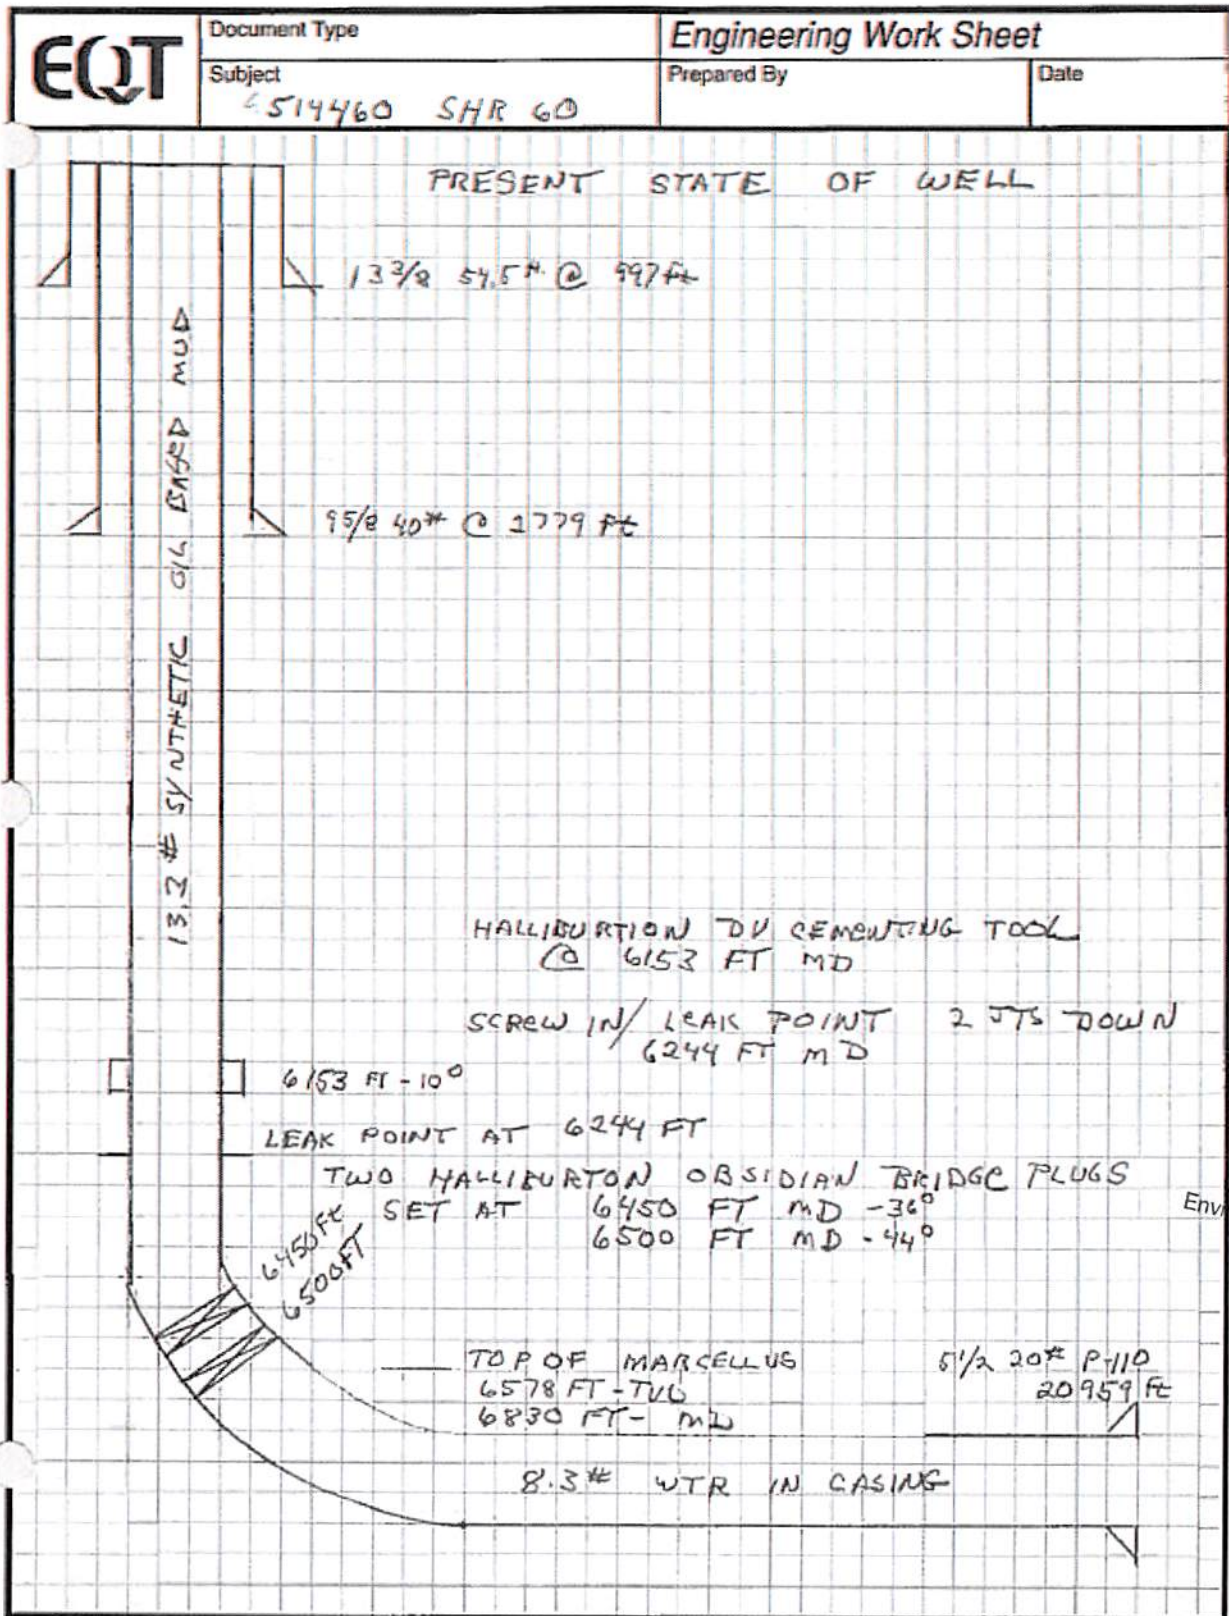 EQT
Document Type
Engineering Work Sheet
Subject
514460 SHR 60
Prepared By
Date
PRESENT STATE OF WELL
13 3/8 54.5 #. @ 997 ft
13.2 # SYNTHETIC OIL BASED MUD
9 5/8 40# @ 2779 ft
HALLIBURTION DV CEMENTING TOOL
@ 6153 FT MD
SCREW IN/ LEAK POINT 2 JTS DOWN
6244 FT MD
6153 FT - 10°
LEAK POINT AT 6244 FT
TWO HALLIBURTON OBSIDIAN BRIDGE PLUGS
SET AT 6450 FT MD - 36°
6500 FT MD - 44°
Envi
6450 Ft
6500 FT
TOP OF MARCELLUS
6578 FT - TVD
6830 FT - MD
5 1/2 20# P-110
20959 ft
8.3 # WTR IN CASING